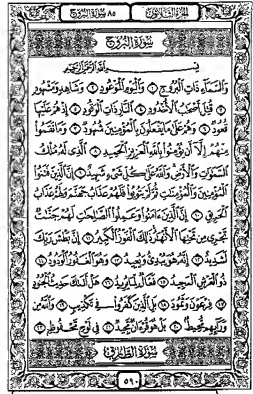 الجزء الثلاثون ٨٥ سورة البروج
سُورَةُ البُرُوجِ
بِسْمِ اللَّهِ الرَّحْمَٰنِ الرَّحِيمِ
وَالسَّمَاءِ ذَاتِ الْبُرُوجِ ١ وَالْيَوْمِ الْمَوْعُودِ ٢ وَشَاهِدٍ وَمَشْهُودٍ
٣ قُتِلَ أَصْحَٰبُ الْأُخْدُودِ ٤ النَّارِ ذَاتِ الْوَقُودِ ٥ إِذْ هُمْ عَلَيْهَا
قُعُودٌ ٦ وَهُمْ عَلَىٰ مَا يَفْعَلُونَ بِالْمُؤْمِنِينَ شُهُودٌ ٧ وَمَا نَقَمُوا
مِنْهُمْ إِلَّا أَن يُؤْمِنُوا بِاللَّهِ الْعَزِيزِ الْحَمِيدِ ٨ الَّذِي لَهُ مُلْكُ
السَّمَٰوَٰتِ وَالْأَرْضِ وَاللَّهُ عَلَىٰ كُلِّ شَيْءٍ شَهِيدٌ ٩ إِنَّ الَّذِينَ فَتَنُوا
الْمُؤْمِنِينَ وَالْمُؤْمِنَٰتِ ثُمَّ لَمْ يَتُوبُوا فَلَهُمْ عَذَابُ جَهَنَّمَ وَلَهُمْ عَذَابُ
الْحَرِيقِ ١٠ إِنَّ الَّذِينَ ءَامَنُوا وَعَمِلُوا الصَّٰلِحَٰتِ لَهُمْ جَنَّٰتٌ
تَجْرِي مِن تَحْتِهَا الْأَنْهَٰرُ ذَٰلِكَ الْفَوْزُ الْكَبِيرُ ١١ إِنَّ بَطْشَ رَبِّكَ
لَشَدِيدٌ ١٢ إِنَّهُ هُوَ يُبْدِئُ وَيُعِيدُ ١٣ وَهُوَ الْغَفُورُ الْوَدُودُ ١٤
ذُو الْعَرْشِ الْمَجِيدُ ١٥ فَعَّالٌ لِّمَا يُرِيدُ ١٦ هَلْ أَتَىٰكَ حَدِيثُ الْجُنُودِ
١٧ فِرْعَوْنَ وَثَمُودَ ١٨ بَلِ الَّذِينَ كَفَرُوا فِي تَكْذِيبٍ ١٩ وَاللَّهُ مِن
وَرَائِهِم مُّحِيطٌ ٢٠ بَلْ هُوَ قُرْءَانٌ مَّجِيدٌ ٢١ فِي لَوْحٍ مَّحْفُوظٍ ٢٢
سُورَةُ الطَّارِقِ
٥٩٠